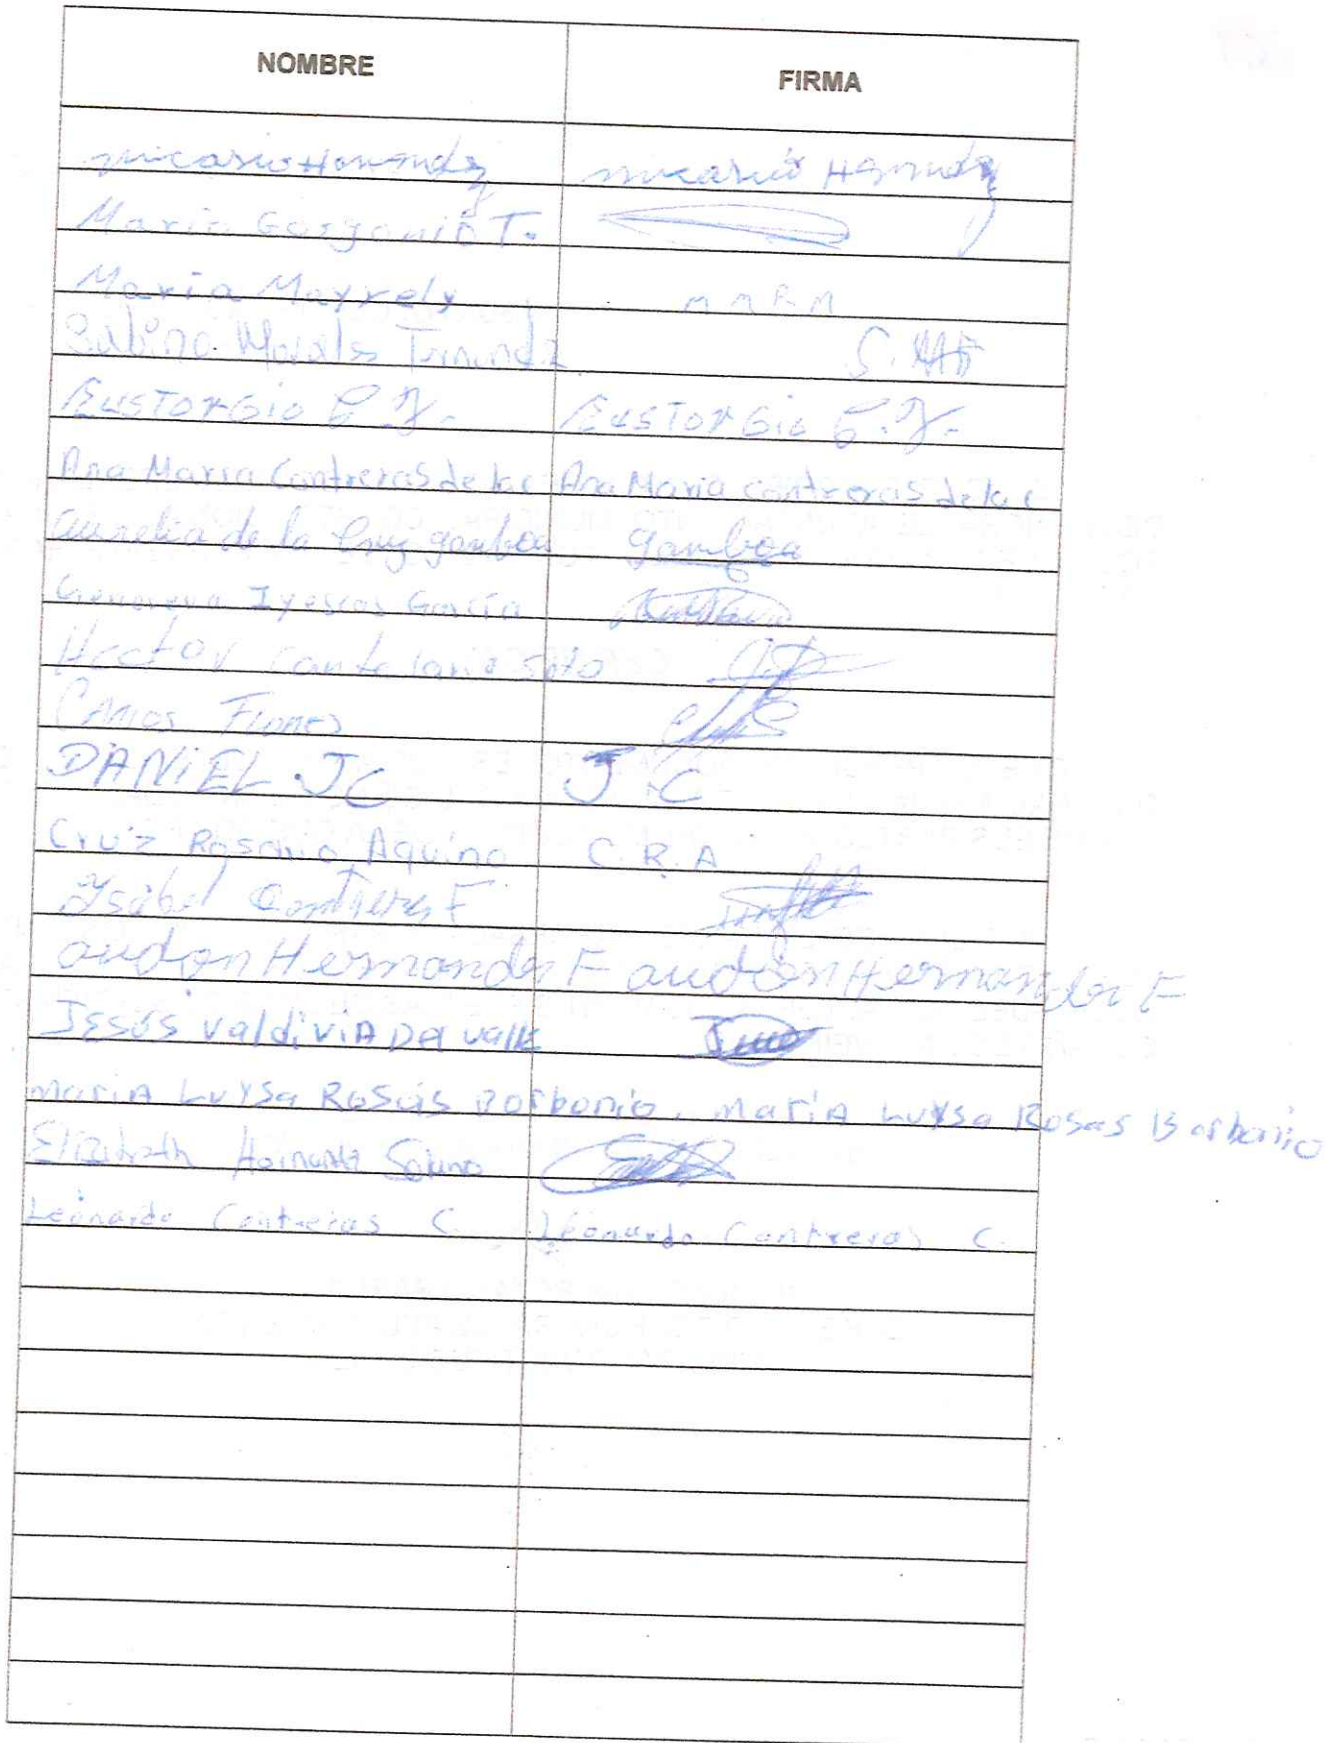 NOMBRE FIRMA
María T.
María Mayrely M M R M
Sabino Morales S.
EusTorGio EusTorGio
Ana Maria Contreras de la c Ana Maria contreras de la c
aurelia de la Cruz gamboa gamboa
Genoveva Iyescas García
Hector Candelario Soto
Carlos Flores
DANIEL JC J.C
Cruz Rosario Aquino C.R.A
Ysabel Contreras F
audon Hernandez F audon Hernandez F
JESÚS valdiviA Del valle
MariA Luysa Rosas Borbonio. MariA Luysa Rosas Borbonio
Elizabeth Solano
Leonardo Contreras C. Leonardo Contreras C.